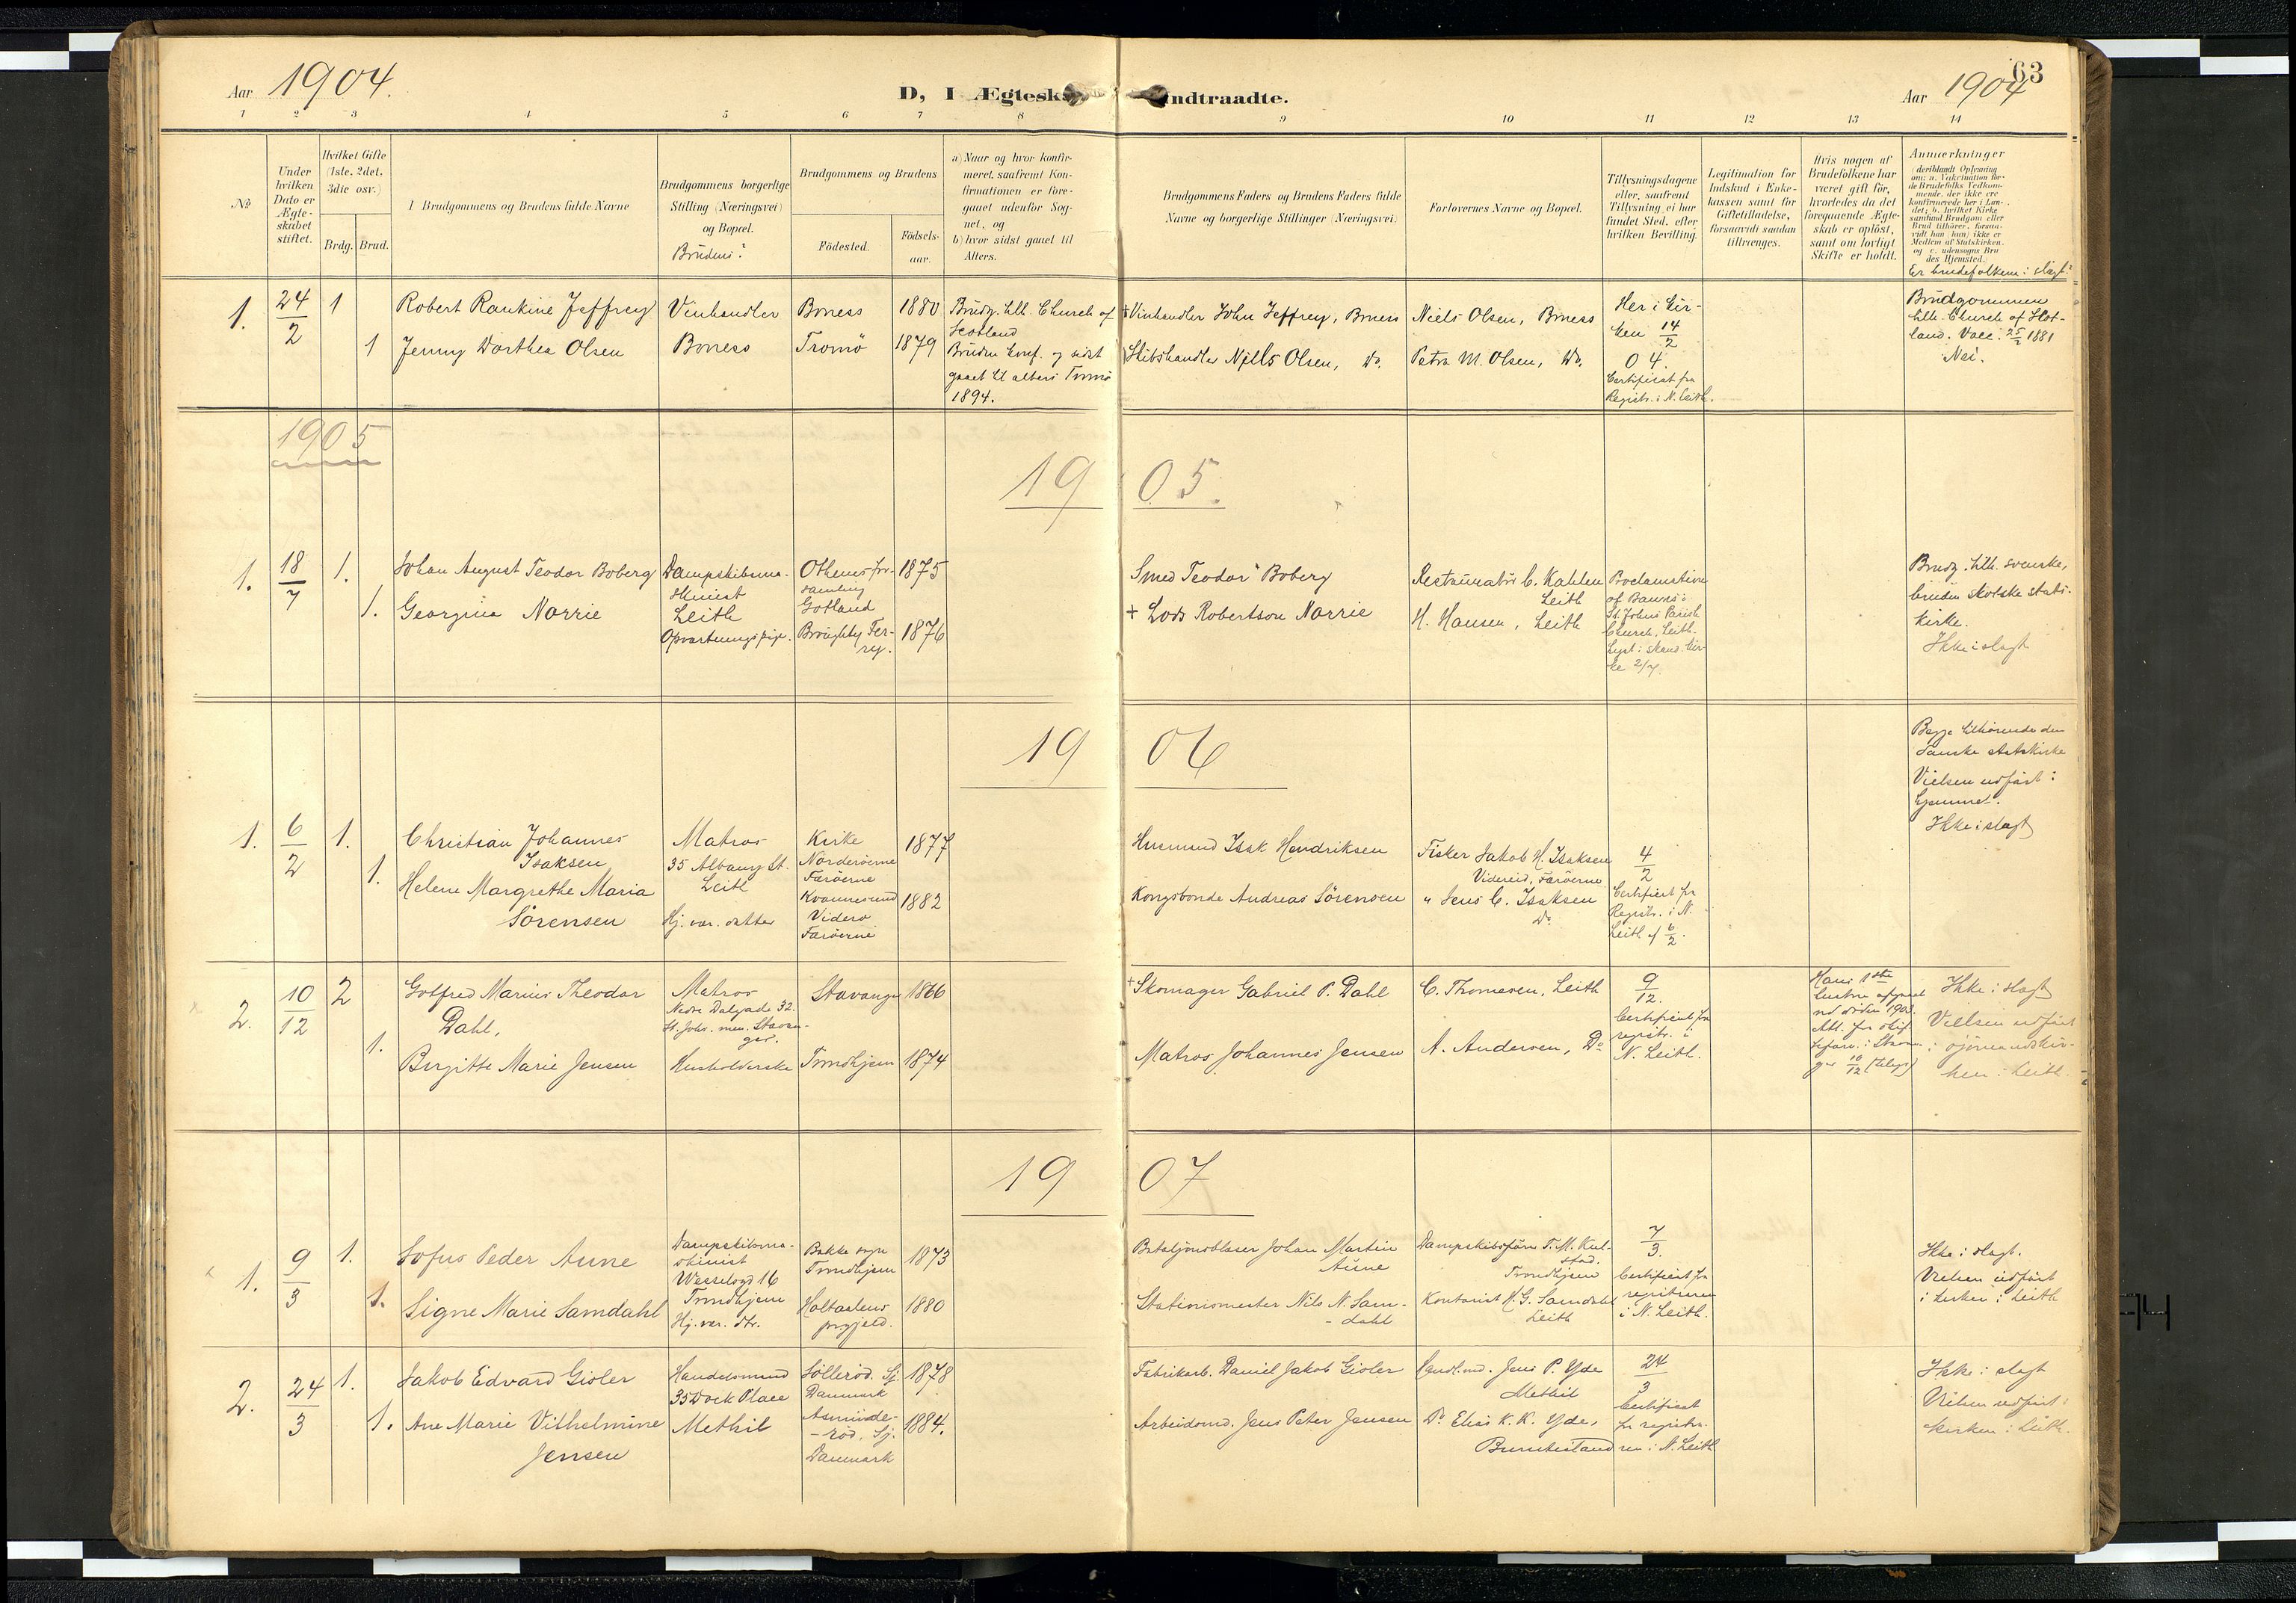 Aar 1904.
D, I Ægtesk
indtraadte.
Aar 1904
63
1 2 3 4 5 6 7 8 9 10 11 12 13 14
No.
Under hvilken Dato er Ægte-skabet stiftet.
Hvilket Gifte (1ste, 2det, 3die osv.)
Brdg. Brud.
I Brudgommens og Brudens fulde Navne
Brudgommens borgerlige Stilling (Næringsvei) og Bopæl.
Brudens:
Brudgommens og Brudens
Fødested.
Fødsels-aar.
a) Naar og hvor konfir-meret, saafremt Kon-firmationen er fore-gaaet udenfor Sog-net, og
b) hvor sidst gaaet til Alters.
Brudgommens Faders og Brudens Faders fulde Navne og borgerlige Stillinger (Næringsvei).
Forlovernes Navne og Bopæl.
Tillysningsdagene eller, saafremt Tillysning ei har fundet Sted, efter hvilken Bevilling.
Legitimation for Indskud i Enke-kassen samt for Giftetilladelse, forsaavidt saadan tiltrænges.
Hvis nogen af Brudefolkene har været gift før, hvorledes da det foregaaende Ægte-skab er opløst, samt om lovligt Skifte er holdt.
Anmærkninger
(deriblandt Oplysning om: a. Vakcination for-de Brudefolks Vedkom-mende, der ikke ere konfirmerede her i Lan-det; b. hvilket Kirke-samfund Brudgom eller Brud tilhører, forsaa-vidt han (hun) ikke er Medlem af Statskirken, og c. udensogns Bru des Hjemsted.
Er brudefolkene i slægt?
1. 24/2 1
Robert Rankine Jeffrey
Vinhandler
Boness
1880
Brudg. tilh. Church of
Scotland
+ Vinhandler John Jeffrey, Boness
Niels Olsen, Boness
Her i Kir-
ken 14/2
04.
Certificat fra
Registr. i N. Leith.
Brudgommen
tilh. Church of Skot-
land. Vacc. 25/2 1881
Nei.
1
Jenny Dorthea Olsen
Boness
Tromsö
1879
Bruden konf. og sidst
gaaet til alters Tromsö
1894.
Skibshandler Niells Olsen, Do.
Petra M. Olsen, Do.
1905
1905.
1. 18/7 1.
Johan August Teodor Boberg
Dampskibsma-
skinist
Leith
Othems for-
samling
Gotland
1875
Smed Teodor Boberg
Restauratör C. Kahlen
Leith
Proclamation
of Banns i
St. Johns Parish
Church, Leith.
Lyst i skand. kir-
ke 2/7.
Brudg. tilh. svenske,
bruden skotske stats-
kirke.
Ikke i slagt
1.
Georgina Norrie
Opvartningspige.
Broughty Fer-
ry.
1876
+ Lods Robertson Norrie
H. Hansen, Leith
1906
Begge tilhørende den
danske statskirke
Vielsen udført i
hjemmet.
Ikke i slagt
1. 6/2 1.
Christian Johannes
Isaksen
Matros
35 Albany St.
Leith
Kirke
Norderöerne
Færöerne
1877
Husmand Isak Hendriksen
Fisker Jakob H. Isaksen
Videreid, Færöerne
4/2
Certifikat fra
Registr. i N.
Leith af 6/2.
1.
Helene Margrethe Maria
Sörensen
Hj. vær. datter
Kvannesund
Viderø
Færöerne
1882
Kongsbonde Andreas Sörensen
" Jens C. Isaksen
Do.
2. 10/12 2
Gotfred Marius Theodor
Dahl,
Matros
Nedre Dalgade 32.
St. Joh. men. Stavan-
ger.
Stavanger
1866
+ Skomager Gabriel P. Dahl
C. Thomesen, Leith
9/12.
Certifikat fra
registr. i
N. Leith.
Hans 1ste
hustru afgaaet
ved döden 1903.
Att. fra skif
i Stavan-
ger 10/12
Ikke i slagt
Vielsen udført
i sjömandskir-
ken i Leith.
1.
Birgitte Marie Jensen
Husholderske
Trondhjem
1874
Matros Johannes Jensen
A. Andersen, Do
1907
1. 9/3 1.
Sofus Peder Aune
Dampskibsma-
skinist
Wesselsgd 16
Trondhjem
Bakke sogn
Trondhjem
1873
Bataljonsblaser Johan Martin
Aune
Dampskibsförer T. M. Kul-
stad.
Trondhjem
7/3.
Certifikat fra
registraren
i N. Leith.
Ikke i slagt.
Vielsen udført
i kirken i Leith
1.
Signe Marie Samdahl
Hj. vær. dtr.
Holtaalens
prgjeld.
1880
Stationsmester Nils N. Sam-
- dahl
Kontorist H. G. Samdahl
Leith
2. 24/3 1.
Jakob Edvard Gisler
Handelsmand
35 Dock Place
Sölleröd. Sj.
Danmark
1878
Fabrikarb. Daniel Jakob Gisler
Handl.md. Jens P. Yde
Methil
24/3
Certifikat
fra registra-
ren i N. Leith
Ikke i slagt
Vielsen udført i
kirken i Leith.
1.
Ane Marie Vilhelmine
Jensen
Methil
Asminde-
-röd. Sj.
Danmark
1884.
Arbeidsmd. Jens Peter Jensen
Do Elise K. K. Yde,
Burntisland